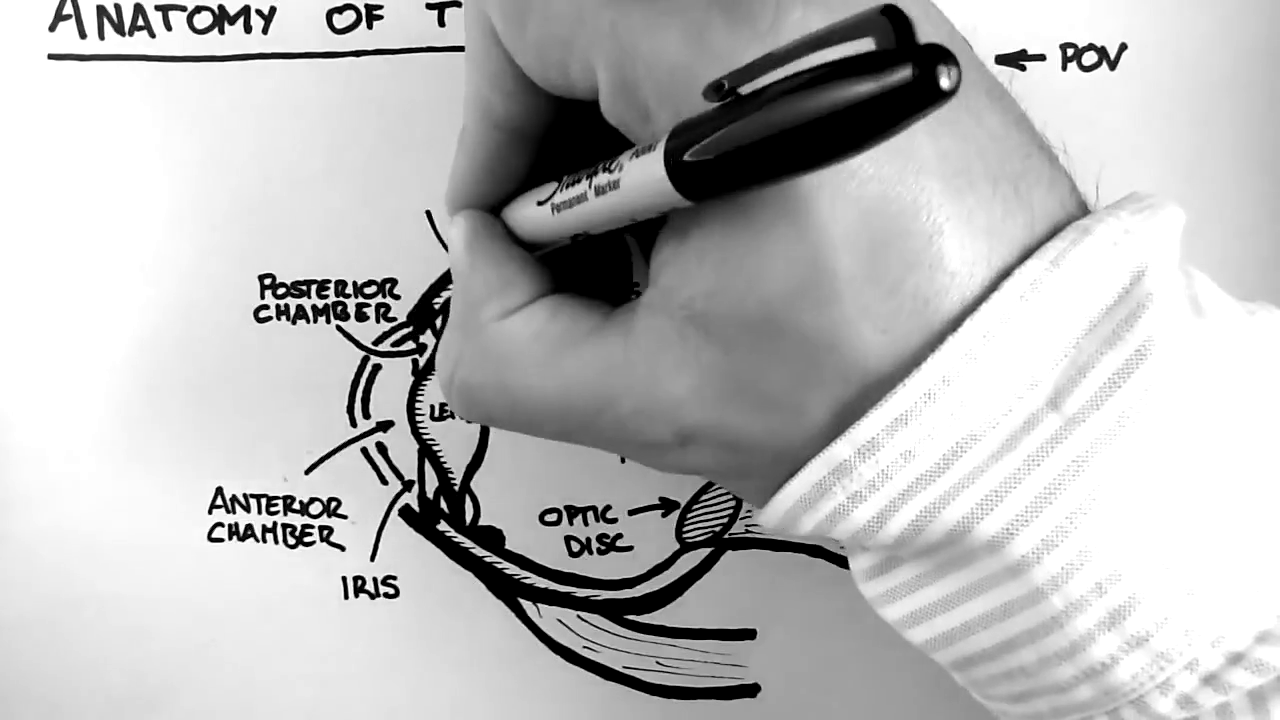 ANATOMY OF T
← POV
Sharpie
Permanent Marker
POSTERIOR
CHAMBER
ANTERIOR
CHAMBER
IRIS
OPTIC
DISC